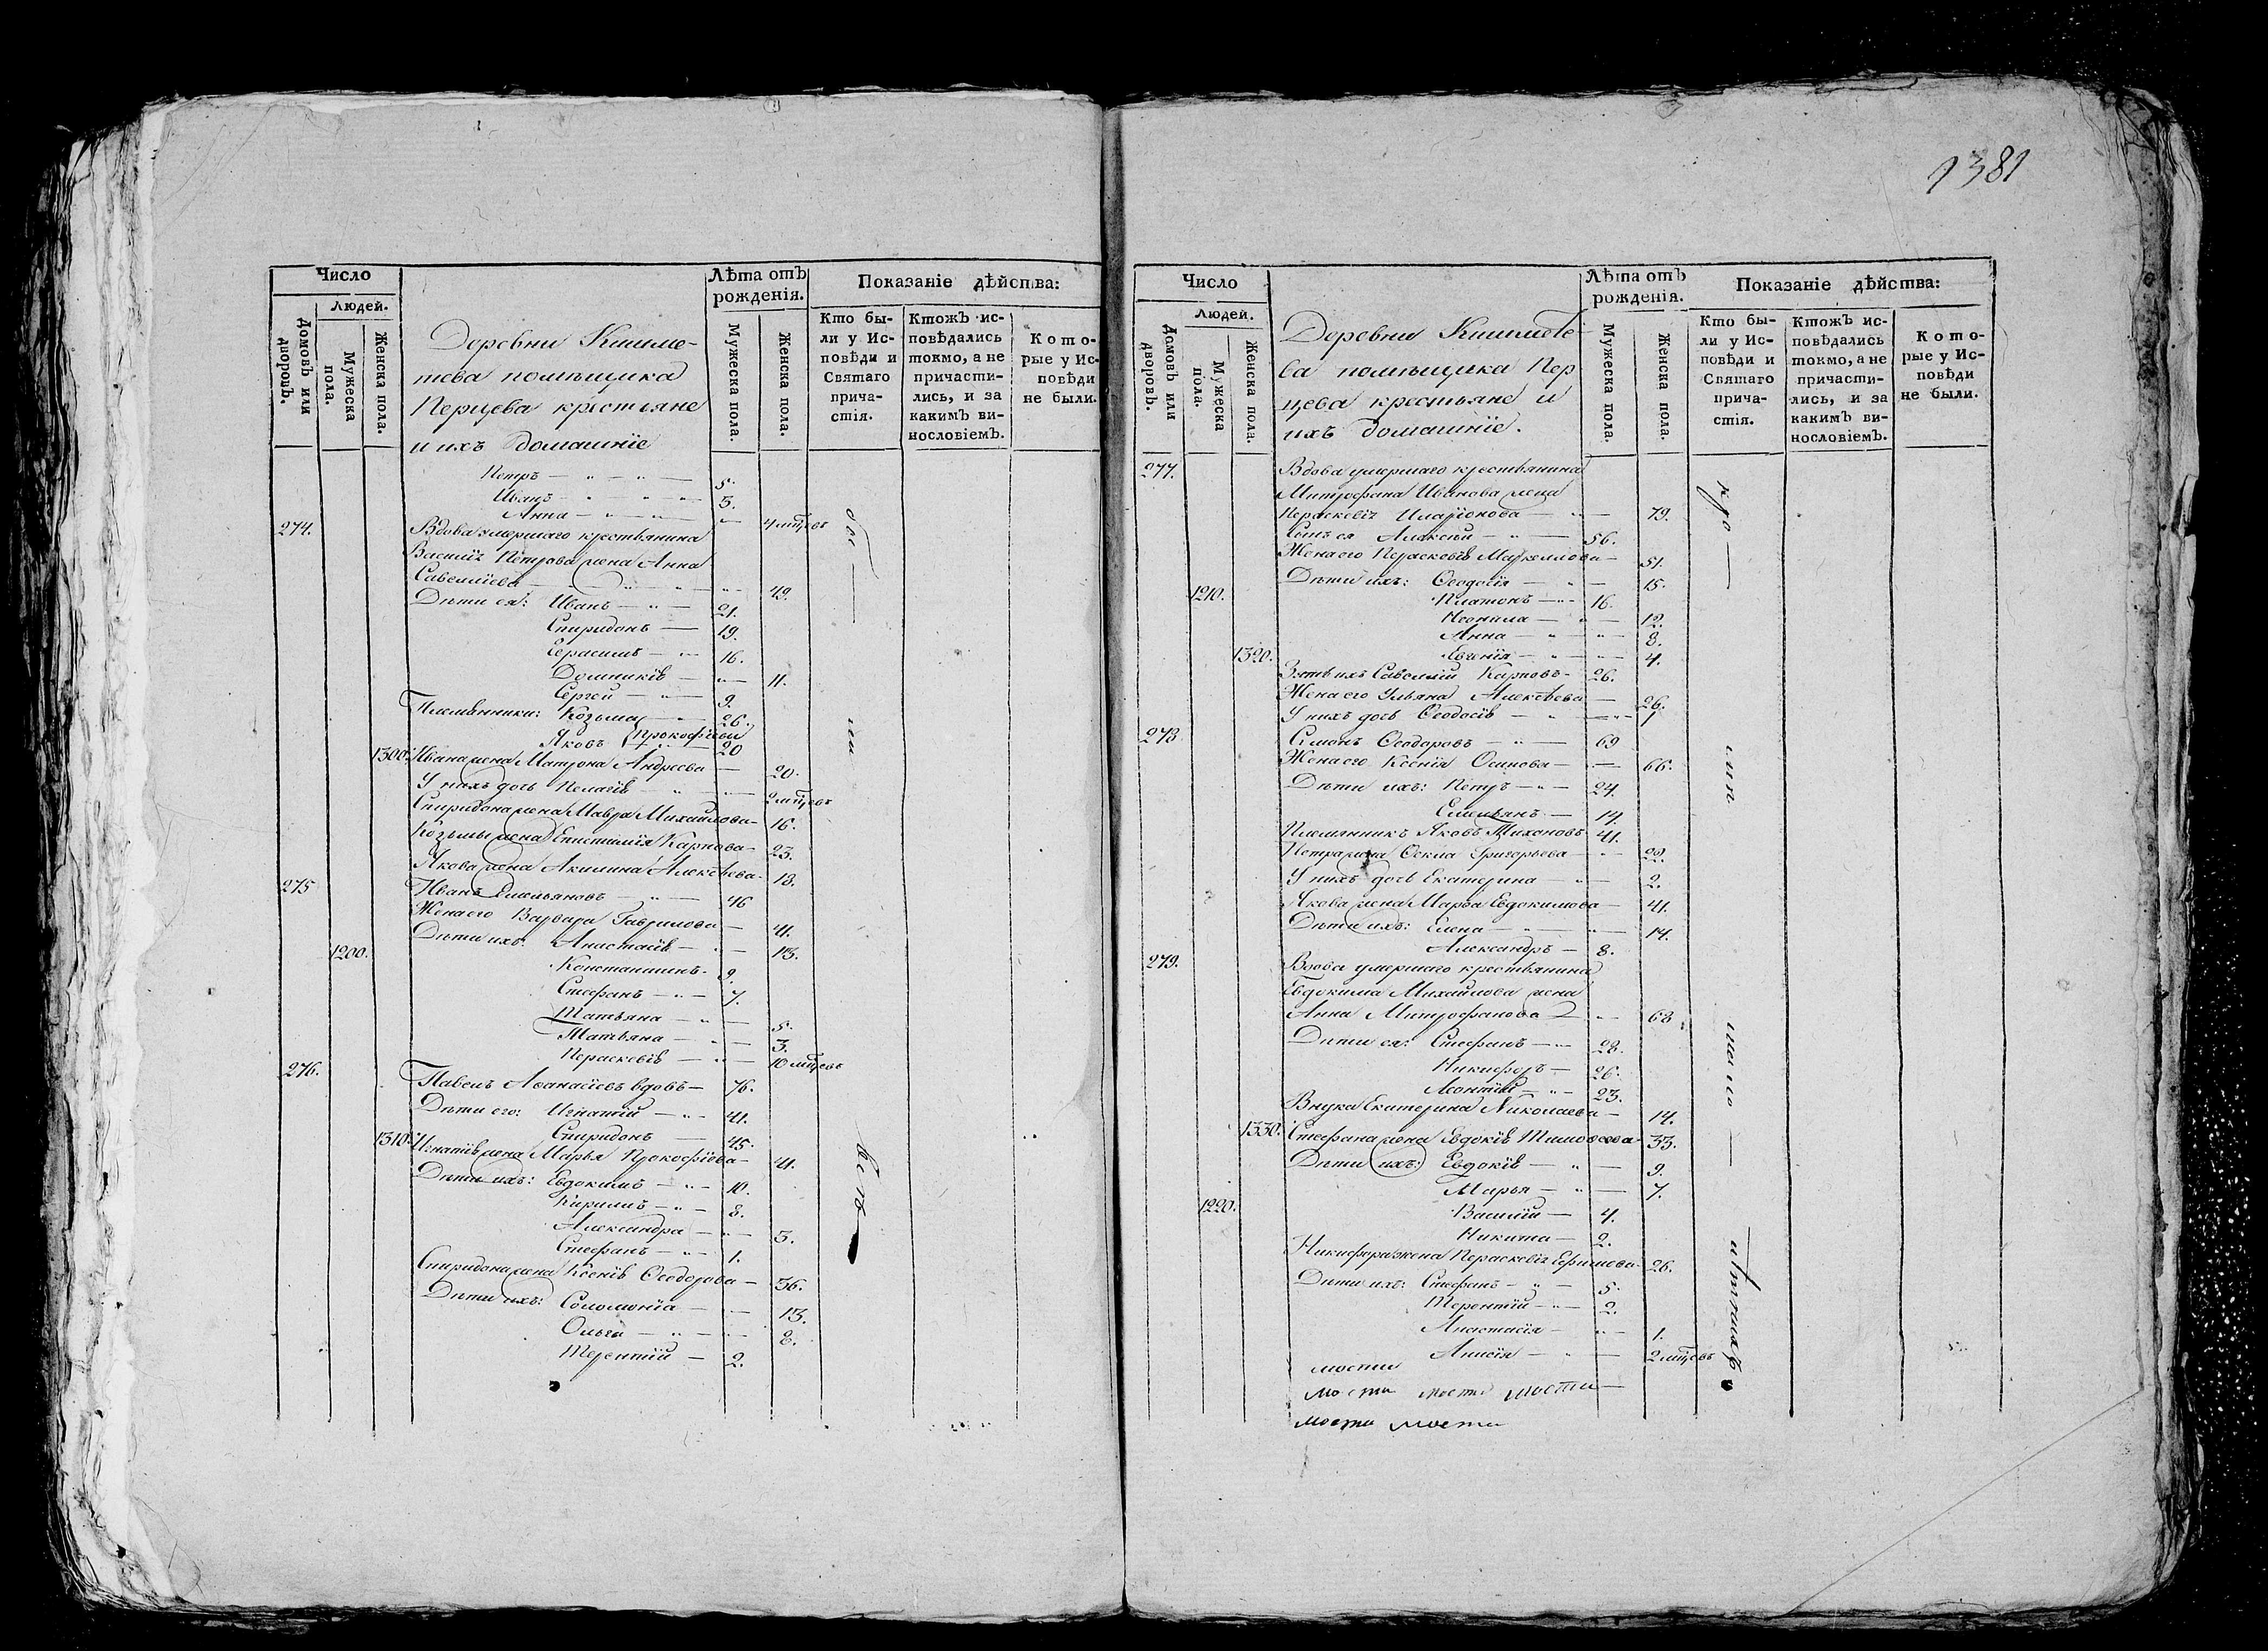 1381
Число
Людей.
Домовъ или дворовъ.
Мужеска пола.
Женска пола.
Деревни Кншме-
тева помѣщика
Перцева крестьяне
и ихъ домашніе
Лѣта отъ рожденія.
Мужеска пола.
Женска пола.
Показаніе дѣйства:
Кто бы-
ли у Ис-
повѣди и
Святаго
прича-
стія.
Ктожъ ис-
повѣдались
токмо, а не
причасти-
лись, и за
какимъ ви-
нословіемъ.
Кото-
рые у Ис-
повѣди
не были.
Петръ — 5.
Иванъ — 3.
Анна — 4 мцевъ
274. Вдова умершаго крестьянина
Василія Петрова жена Анна
Савеліева — 49.
Дѣти ея: Иванъ — 21.
Спиридонъ — 19.
Герасимъ — 16.
Домникія — 11.
Сергей — 9.
Племянники: Козьма — 26.
Яковъ Прокофіевы — 20
1300. Ивана жена Матрона Андреева — 20.
У нихъ дочь Пелагія — 2 мцевъ
Спиридона жена Мавра Михайлова — 16.
Козьмы жена Епистимія Карпова — 23.
Якова жена Акилина Алексѣева — 18.
275 Иванъ Емельяновъ — 46
Жена его Варвара Гаврилова — 41.
Дѣти ихъ: Анастасія — 13.
1200. Константинъ — 9.
Стефанъ — 7.
Татьяна — 5.
Татьяна — 3.
Пераскевія — 10 мцевъ
276. Павелъ Аѳанасіевъ вдовъ — 76.
Дѣти его: Игнатій — 41.
Спиридонъ — 45.
1310. Игнатія жена Марья Прокофіева — 41.
Дѣти ихъ: Евдокимъ — 10.
Кирилъ — 8.
Александра — 3.
Стефанъ — 1.
Спиридона жена Ксенія Ѳеодорова — 36.
Дѣти ихъ: Соломонія — 13.
Ольга — 8.
Терентій — 2.
Число
Людей.
Домовъ или дворовъ.
Мужеска пола.
Женска пола.
Деревни Кншметѣ-
ва помѣщика Пер
цева крестьяне и
ихъ домашніе.
Лѣта отъ рожденія.
Мужеска пола.
Женска пола.
Показаніе дѣйства:
Кто бы-
ли у Ис-
повѣди и
Святаго
прича-
стія.
Ктожъ ис-
повѣдались
токмо, а не
причасти-
лись, и за
какимъ ви-
нословіемъ.
Кото-
рые у Ис-
повѣди
не были.
277. Вдова умершаго крестьянина
Митрофана Иванова жена
Пераскевія Иларіонова — 79.
Сынъ ея Алексѣй — 56.
Жена его Пераскевія Маркеллова — 51.
Дѣти ихъ: Ѳеодосія — 15.
1210. Платонъ — 16.
Неонила — 12.
Анна — 8.
1320. Евгенія — 4.
Зять ихъ Савелій Карповъ — 26.
Жена его Ульяна Алексѣева — 26.
У нихъ дочь Ѳеодосія — 1
278 Симонъ Ѳеодоровъ — 69
Жена его Ксенія Осипова — 66.
Дѣти ихъ: Петръ — 24.
Емельянъ — 14.
Племянникъ Яковъ Тихоновъ 41.
Петра жена Ѳекла Григорьева — 22.
У нихъ дочь Екатерина — 2.
Якова жена Марья Евдокимова — 41.
Дѣти ихъ: Елена — 14.
Александръ — 8.
279. Вдова умершаго крестьянина
Евдокима Михайлова жена
Анна Митрофанова — 68
Дѣти ея: Стефанъ — 28.
Никифоръ — 26.
Леонтій — 23.
Внука Екатерина Николаева — 14.
1330. Стефана жена Евдокія Тимоѳеева — 33.
Дѣти ихъ: Евдокія — 9.
Марья — 7.
1220. Василій — 4.
Никита — 2.
Никифора жена Пераскевія Ефимова 26.
Дѣти ихъ: Стефанъ — 5.
Терентій — 2.
Анастасія — 1.
Анисія — 2 мцевъ
мости
мости мости мости
мости мости